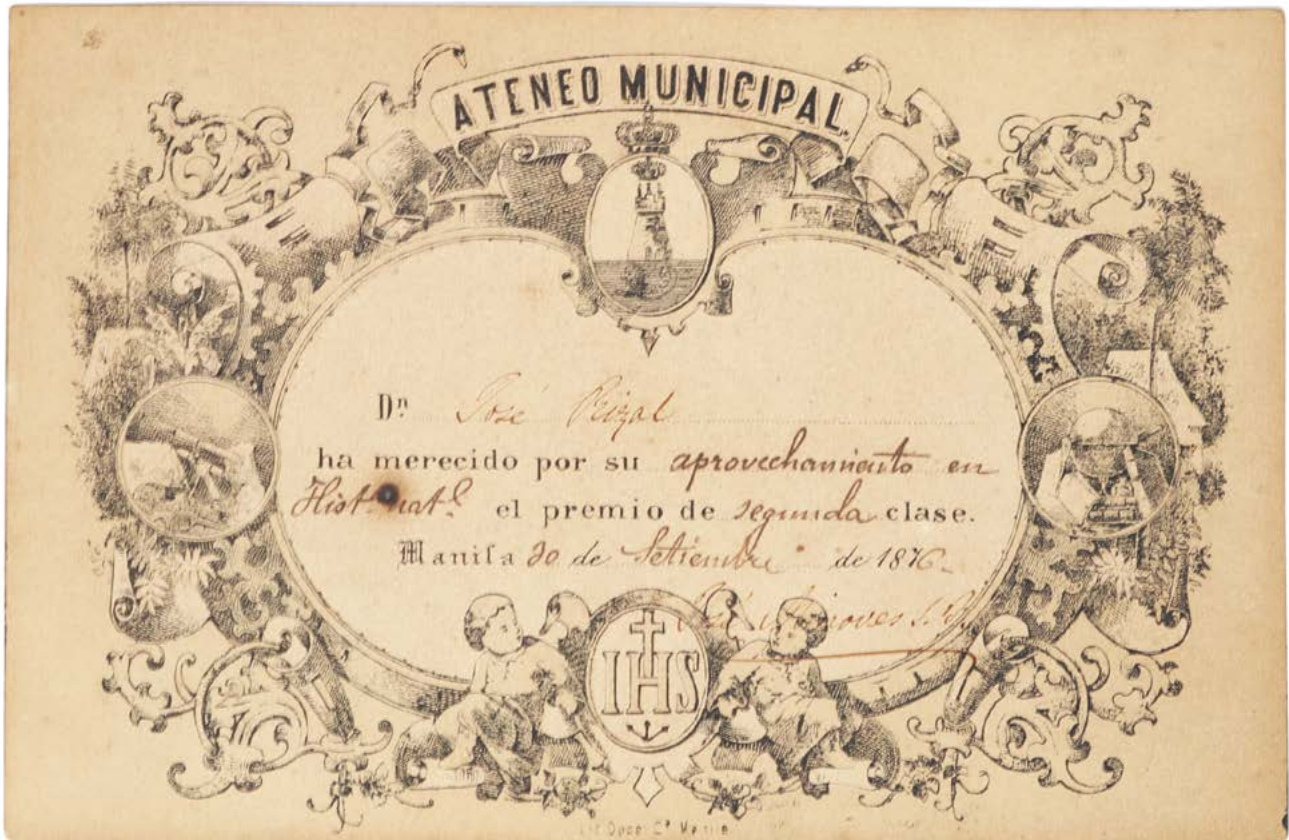 ATENEO MUNICIPAL.
Dn José Rizal
ha merecido por su aprovechamiento en
Hist. natl. el premio de segunda clase.
Manila 30 de Setiembre de 1876.
José S.J.
IHS
Manila